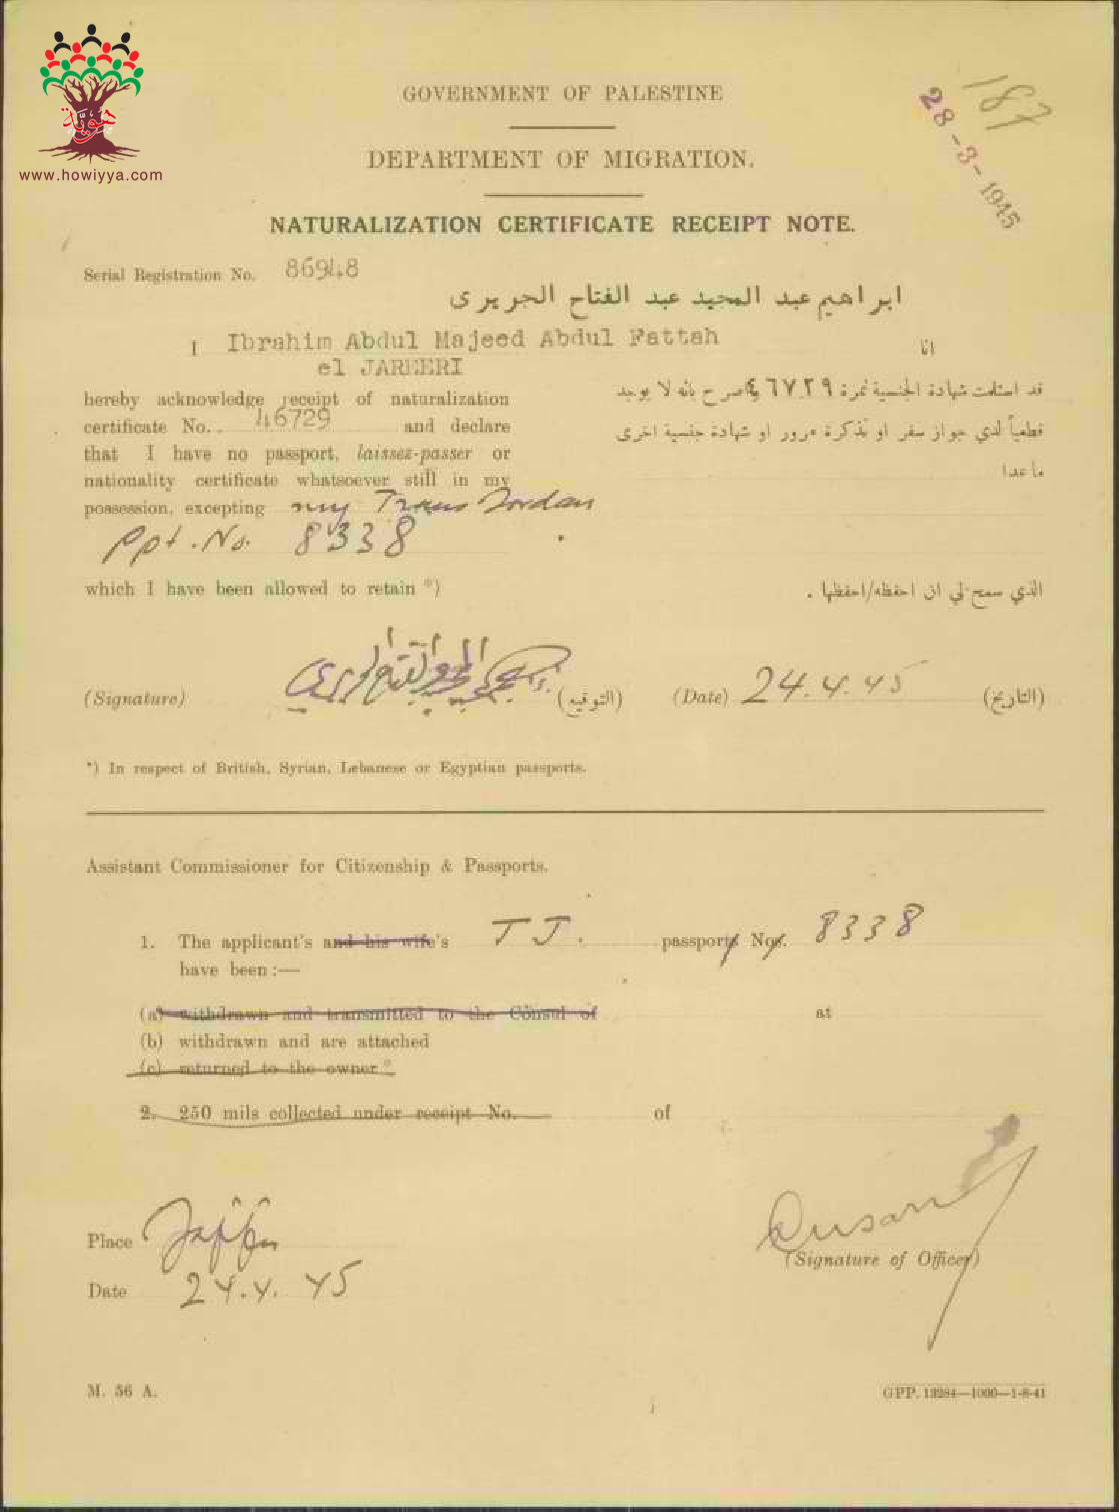 هوية
www.howiyya.com
187
28-3-1945
GOVERNMENT OF PALESTINE
DEPARTMENT OF MIGRATION.
NATURALIZATION CERTIFICATE RECEIPT NOTE.
Serial Registration No. 86948
ابراهيم عبد المجيد عبد الفتاح الجريرى
I Ibrahim Abdul Majeed Abdul Fattah
el JAREERI
انا
hereby acknowledge receipt of naturalization
certificate No. 46729 and declare
that I have no passport, laissez-passer or
nationality certificate whatsoever still in my
possession, excepting my Trans Jordan
Ppt. No. 8338
which I have been allowed to retain *)
قد استلمت شهادة الجنسية نمرة ٤٦٧٢٩ واصرح بانه لا يوجد
قطعياً لدي جواز سفر او تذكرة مرور او شهادة جنسية اخرى
ما عدا
الذي سمح لي ان احفظه/احفظها .
(Signature) (التوقيع) (Date) 24.4.45 (التاريخ)
*) In respect of British, Syrian, Lebanese or Egyptian passports.
Assistant Commissioner for Citizenship & Passports.
1. The applicant's and his wife's T J. passports Nos. 8338
have been :—
(a) withdrawn and transmitted to the Consul of at
(b) withdrawn and are attached
(c) returned to the owner *
2. 250 mils collected under receipt No. of
Place Jaffa
Date 24.4.45
(Signature of Officer)
M. 56 A.
GPP. 13284—1000—1-8-41